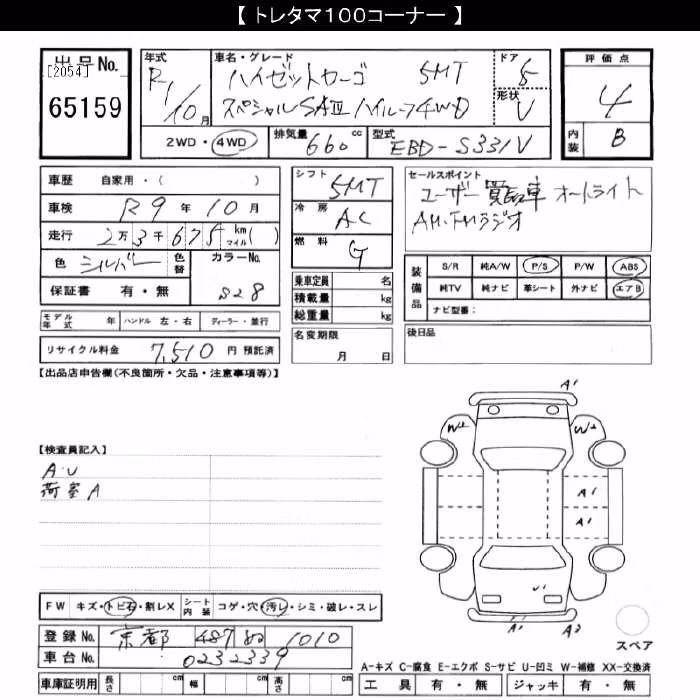 【 トレタマ100コーナー 】
出品No.
[2054]
65159
年式
R1/10月
車名・グレード
ハイゼットカーゴ 5MT
スペシャルSAⅢ ハイルーフ4WD
ドア
5
形状
V
評価点
4
内装
B
2WD・4WD
排気量
660 cc
型式
EBD-S331V
車歴 自家用・( )
車検 R9年10月
走行 2万3千675 km マイル( )
色 シルバー 色替
カラーNo.
S28
保証書 有・無
モデル年式 年 ハンドル 左・右 ディーラー・並行
リサイクル料金 7,510 円 預託済
シフト
5MT
冷房
AC
燃料
G
乗車定員 名
積載量 kg
総重量 kg
名変期限
月 日
セールスポイント
ユーザー買取車 オートライト
AM・FMラジオ
装備品
S/R 純A/W P/S P/W ABS
純TV 純ナビ 革シート 外ナビ エアB
ナビ型番:
後日品
【出品店申告欄(不良箇所・欠品・注意事項等)】
【検査員記入】
A・U
荷室A
A1
W2 W2
A1
A1
U1
A1 A2
スペア
FW キズ・トビ石・割レX シート内装 コゲ・穴・汚レ・シミ・破レ・スレ
登録No. 京都 487 る 1010
車台No. 0232339
車庫証明用 長さ cm 幅 cm 高さ cm
A-キズ C-腐食 E-エクボ S-サビ U-凹ミ W-補修 XX-交換済
工具 有・無 ジャッキ 有・無